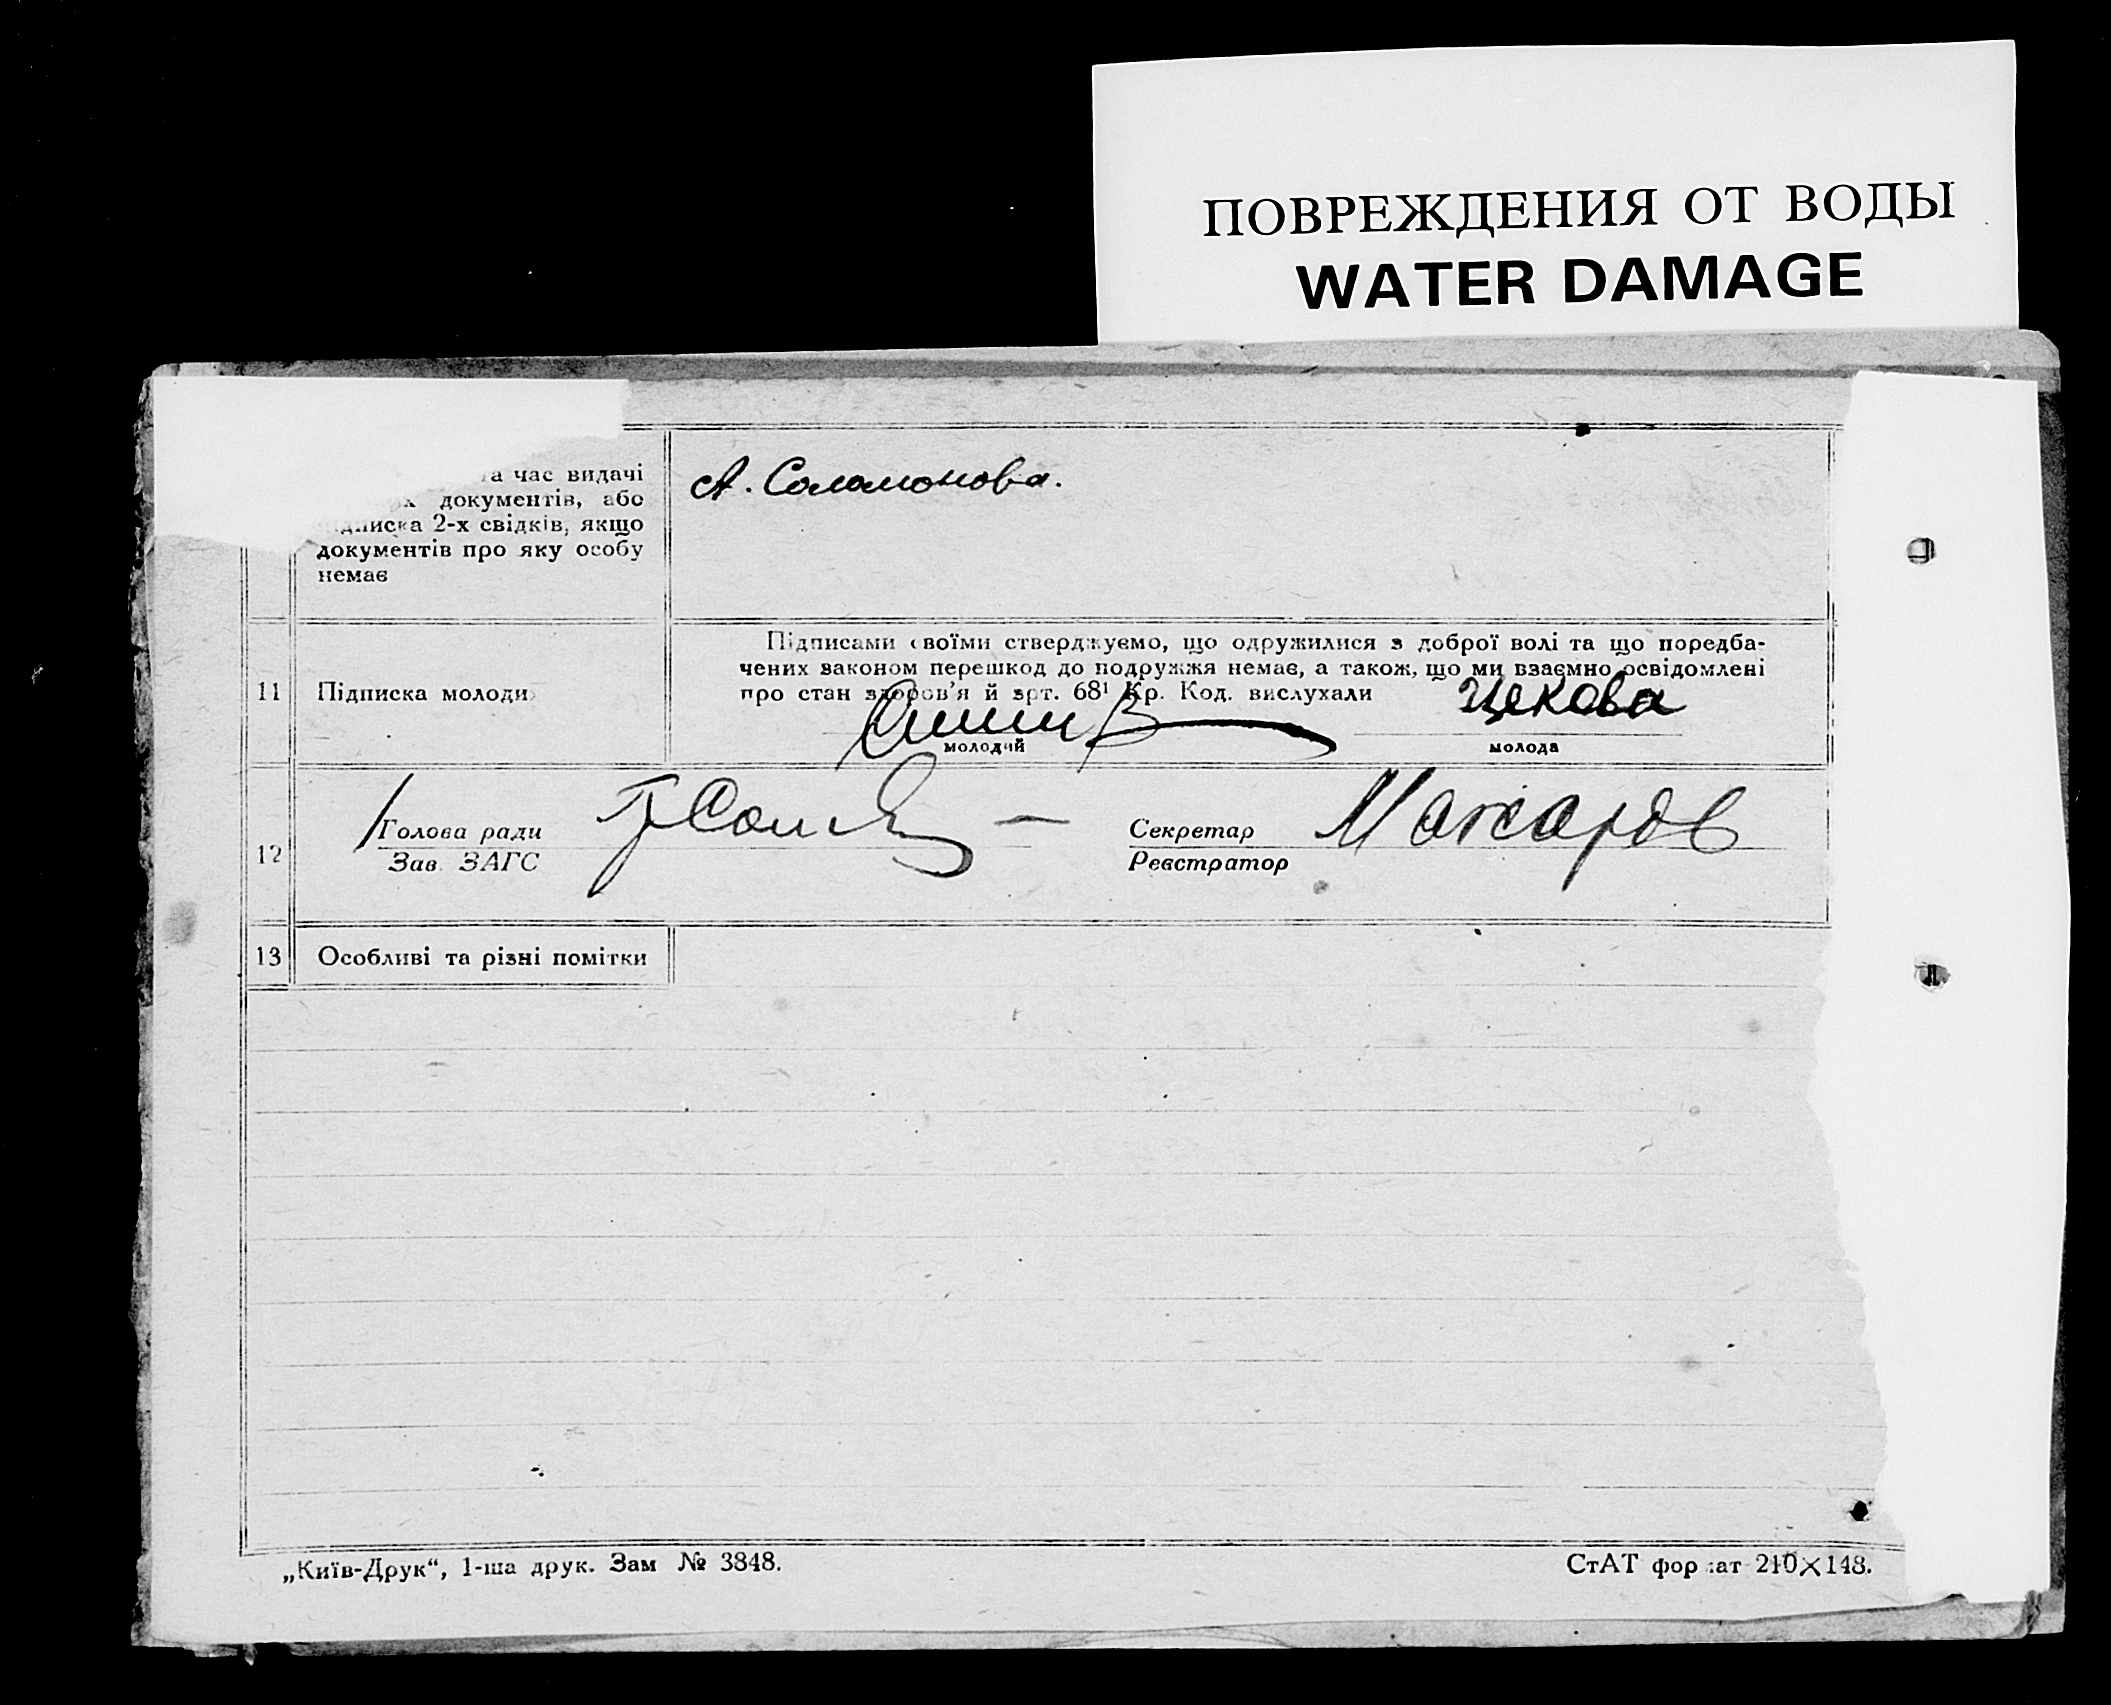 ПОВРЕЖДЕНИЯ ОТ ВОДЫ
WATER DAMAGE
час видачі
документів, або
підписка 2-х свідків, якщо
документів про яку особу
немає
А. Соломонова.
11
Підписка молоди
Підписами своїми стверджуємо, що одружилися з доброї волі та що поредба-
чених законом перешкод до подружжя немає, а також, що ми взаємно освідомлені
про стан здоров'я й арт. 68¹ Кр. Код. вислухали
Цекова
молодий
молода
12
Голова ради
Зав. ЗАГС
Секретар
Реєстратор
Макаров
13
Особливі та різні помітки
„Київ-Друк“, 1-ша друк. Зам № 3848.
СтАТ формат 210×148.